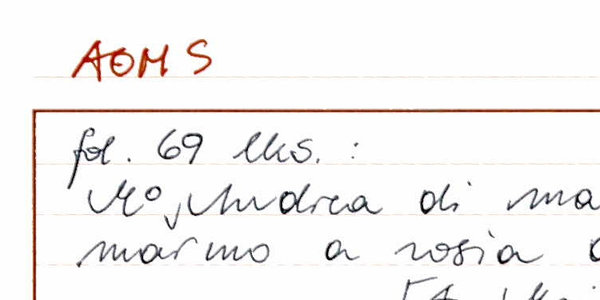 AOMS
fol. 69 lks. :
Mo Andrea di ma
marmo a rosia